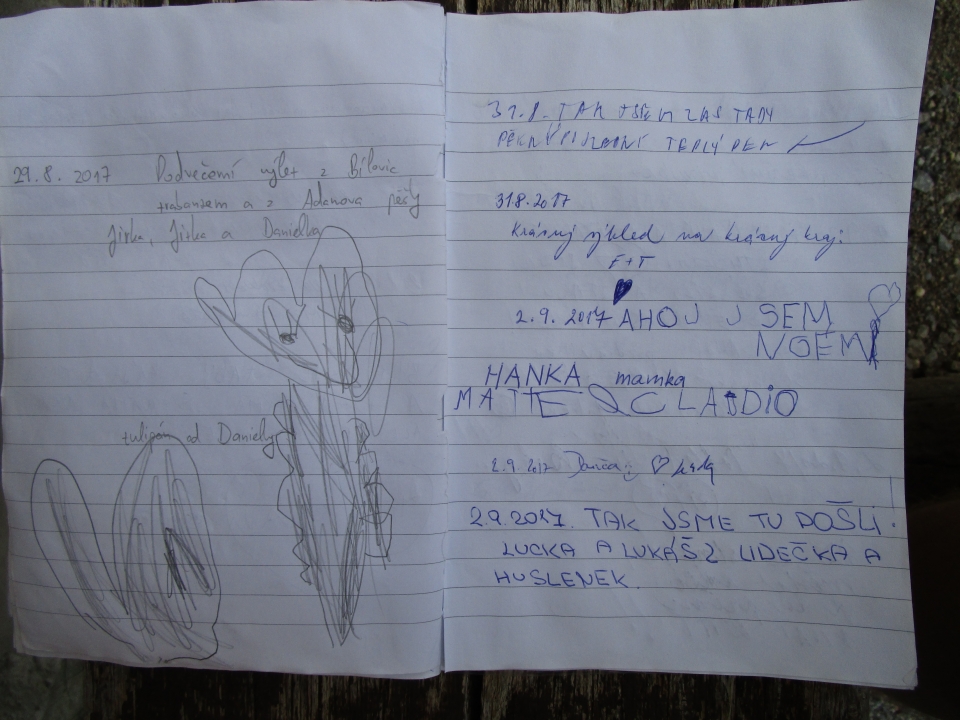 29.8.2017 Podvečerní výlet z Bílovic
trabantem a z Adamova pěšky
Jirka, Jirka a Danielka
tulipán od Danielky
31.8. TAK JSEM ZAS TADY
TEPLÝ DEN
31.8.2017
Krásný výhled na krásný kraj.
F+T
2.9.2017 AHOJ JSEM
NOEMI
HANKA mamka
MATTE CLADIO
2.9.2017
2.9.2017. TAK JSME TU DOŠLI.
LUCKA A LUKÁŠ Z LIDEČKA A
HUSLENEK.